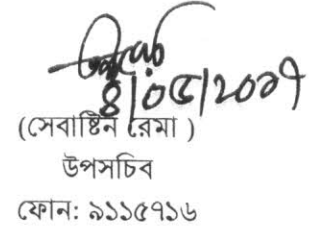 ৪/০৫/২০১৭
(সেবাষ্টিন রেমা )
উপসচিব
ফোন: ৯১১৫৭১৬